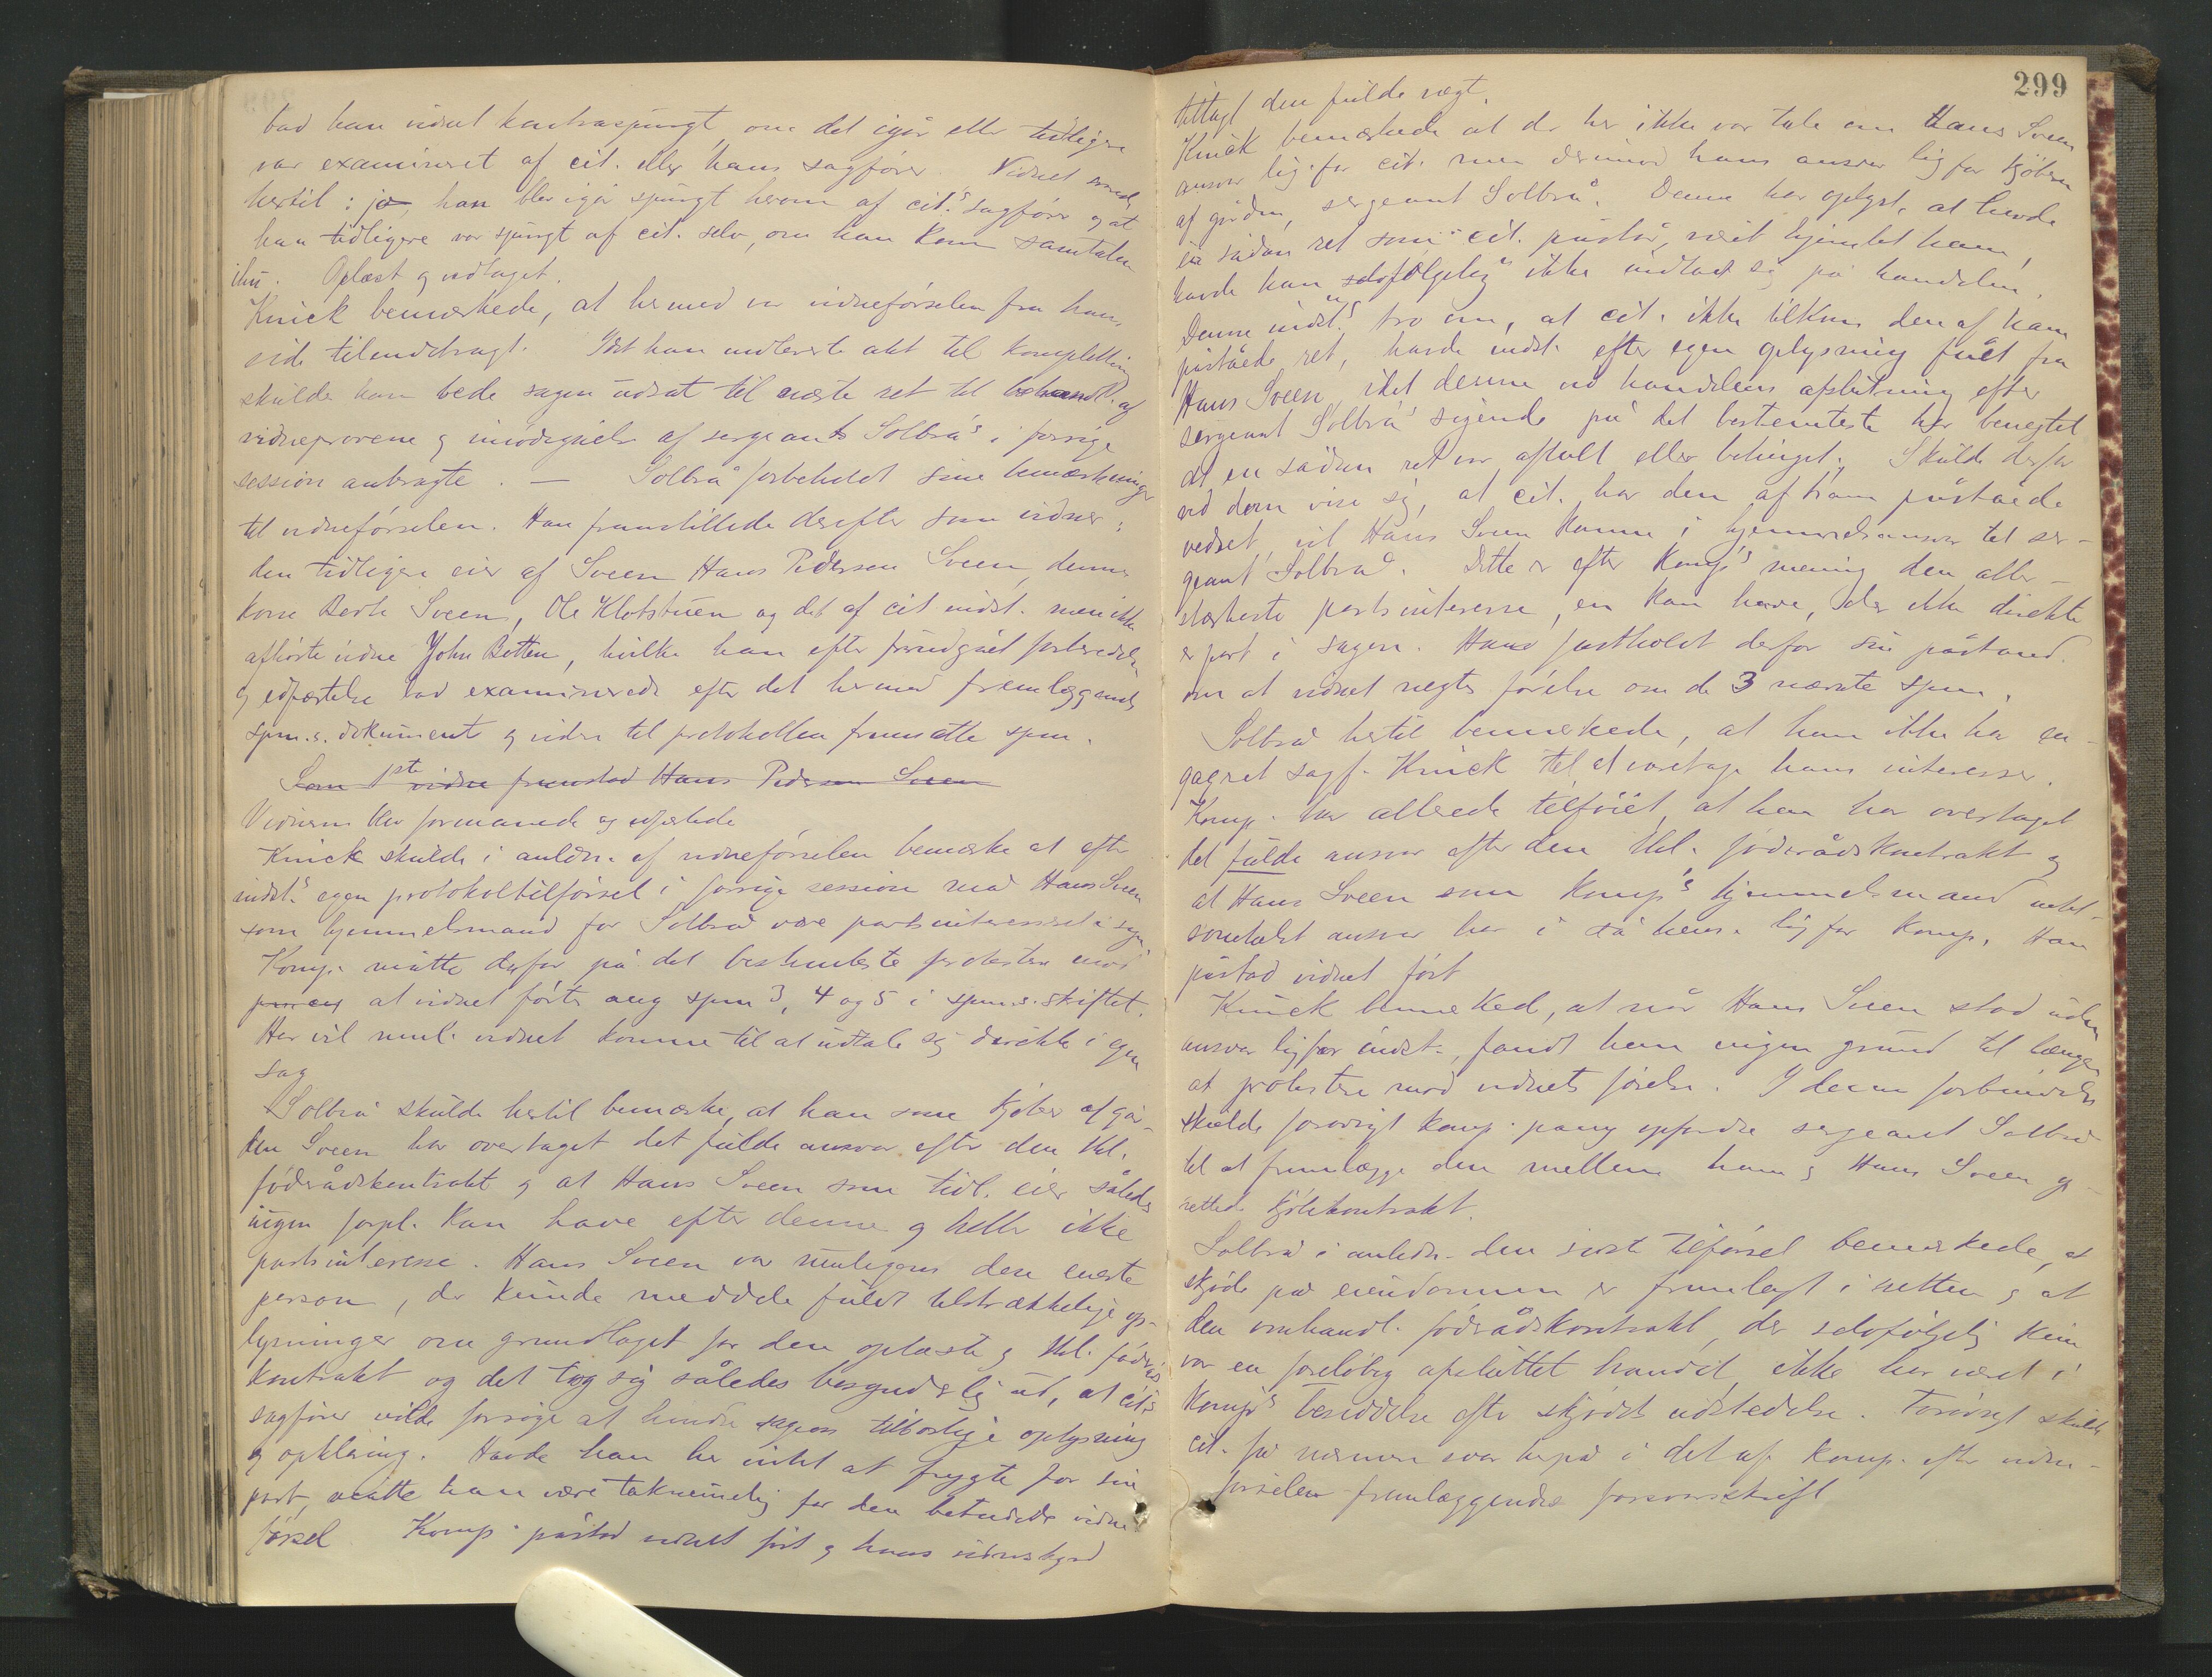 bad han vidnet kontraspurgt om det igår eller tidligere
var examineret af cit. eller hans sagfører. Vidnet svarede
hertil: jo, han blev igår spurgt herom af cit.s sagfører og at
han tidligere var spurgt af cit. selv, om han kom samtalen
ihu. Oplæst og vedtaget.
Knick bemærkede, at hermed var vidneførselen fra hans
side tilendebragt. Idet han endleverte akt til komplettering
skulde han bede sagen udsat til næste ret til behandl. af
vidneprovene og imødegåelse af sergeant Solbrå's i forrige
session anbragte. — Solbrå forbeholdt sine bemærkninger
til vidneførselen. Han fremstillede derefter som vidner:
den tidligere eier af Sveen Hans Pedersen Sveen, dennes
kone Berte Sveen, Ole Klotstuen og det af cit. indst. men ikke
afhørte vidne John Betten, hvilke han efter forudgået forberedelse
og edfæstelse bad examinerede efter det hermed fremlæggende
spm.s. dokument og videre til protokollen fremsatte spm.
Som 1ste vidne fremstod Hans Pedersen Sveen
Vidnerne blev formanede og edfæstede
Knick skulde i anledn. af vidneførselen bemærke at efter
indst.s egen protokoltilførsel i forrige session må Hans Sveen
som hjemmelsmand for Solbrå være partsinteresseret i sagen
Komp. måtte derfor på det bestemteste protestere mod
at vidnet førtes ang spm 3, 4 og 5 i spm.s. skiftet.
Her vil neml. vidnet komme til at udtale sig direkte i egen
sag
Solbrå skulde hertil bemærke, at han som kjøber af går-
den Sveen har overtaget det fulde ansvar efter den thl.
föderådskontrakt og at Hans Sveen som tidl. eier således
ingen forpl. kan have efter denne og heller ikke
partsinteresse. Hans Sveen var rimeligens den eneste
person, der kunde meddele fuldt tilstrækkelige op-
lysninger om grundlaget for den oplæste og thl. föderåds
kontrakt og det tog sig således besynderlig ud, at cit.s
sagfører vilde forsøge at hindre sagens tilbørlige oplysning
og opklaring. Havde han her intet at frygte for sin
part, måtte han være taknemmelig for den betydede vidne-
førsel. Komp. påstod vidnet ført og hans vidnesbyrd
299
tillagt den fulde vægt.
Knick bemærkede at der her ikke var tale om Hans Sveens
ansvar ligefor cit. men derimod hans ansvar ligefor kjøberen
af gården, sergeant Solbrå. Denne har oplyst, at havde
en sådan ret som cit. påstår, været hjemlet ham,
havde han selvfølgelig ikke indladt sig på handelen.
Denne indst.s tro om, at cit. ikke tilkom den af ham
påståede ret, havde indst. efter egen oplysning fået fra
Hans Sveen, idet denne ved handelens afslutning efter
sergeant Solbrå's sigende på det bestemteste har benegtet
at en sådan ret var aftalt eller betinget. Skulde derfor
ved dom vise sig, at cit. har den af ham påståede
vedret, vil Hans Sveen komme i hjemmelsansvar til ser-
geant Solbrå. Dette er efter komp's mening den aller-
stærkeste partsinteresse, en kan have, der ikke direkte
er part i sagen. Hans fastholdt derfor sin påstand
om at vidnet nægtes førelse om de 3 nævnte spm.
Solbrå hertil bemærkede, at han ikke har en-
gageret sagf. Knick til at varetage hans interesser.
Komp. har allerede tilføiet, at han har overtaget
det fulde ansvar efter den thl. föderådskontrakt og
at Hans Sveen som komp's hjemmelsmand intet-
somhelst ansvar har i så hens. ligefor komp. Han
påstod vidnet ført
Knick bemerked, at når Hans Sveen stod uden
ansvar ligefor indst., fandt han ingen grund til længer
at protestere mod vidnets førelse. I denne forbindelse
skulde forøvrigt komp. opfordre sergeant Solbrå
til at fremlægge den mellem ham og Hans Sveen op-
rettede kjøbekontrakt.
Solbrå i anledn. den sidste tilførsel bemærkede, at
skjøde på eiendommen er fremlagt i retten og at
den omhandl. föderådskontrakt, der selvfølgelig kun
var en foreløbig afsluttet handel ikke har været i
komp's besiddelse efter skjødets udstedelse. Forøvrigt skulde
cit. få nærmere svar herpå i det af komp. efter vidne-
førselen fremlæggendes forsvarsskrift